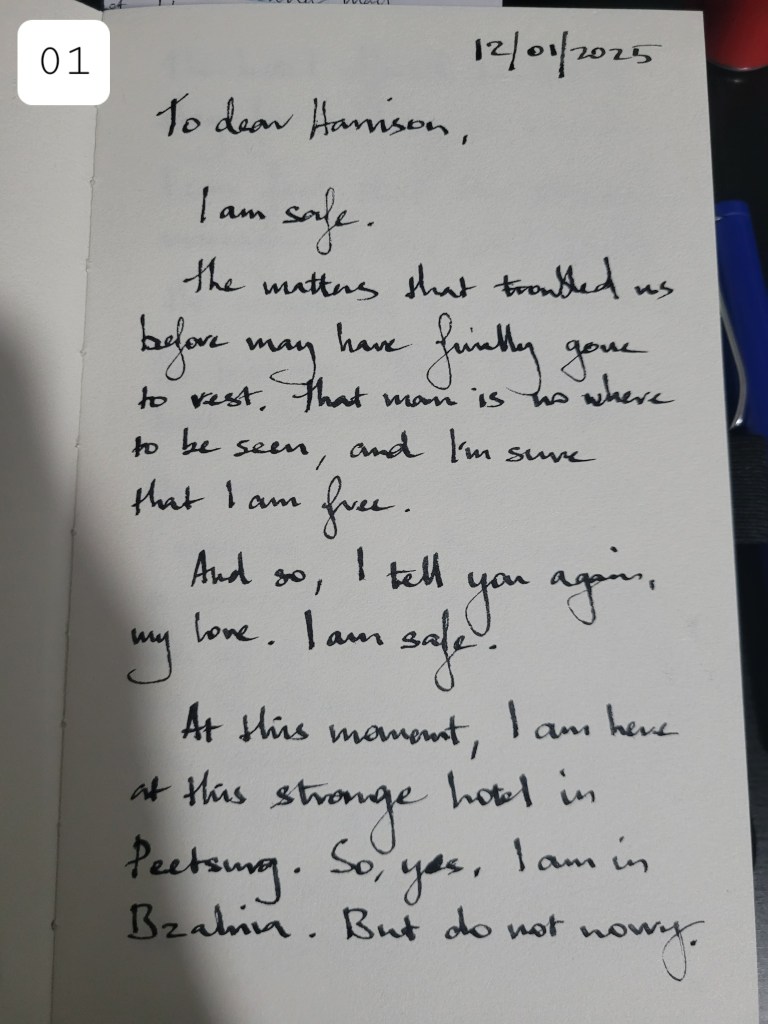 01
12/01/2025
To dear Harrison,
I am safe.
The matters that troubled us
before may have finally gone
to rest. That man is no where
to be seen, and I'm sure
that I am free.
And so, I tell you again,
my love. I am safe.
At this moment, I am here
at this strange hotel in
Peetsung. So, yes, I am in
But do not worry.